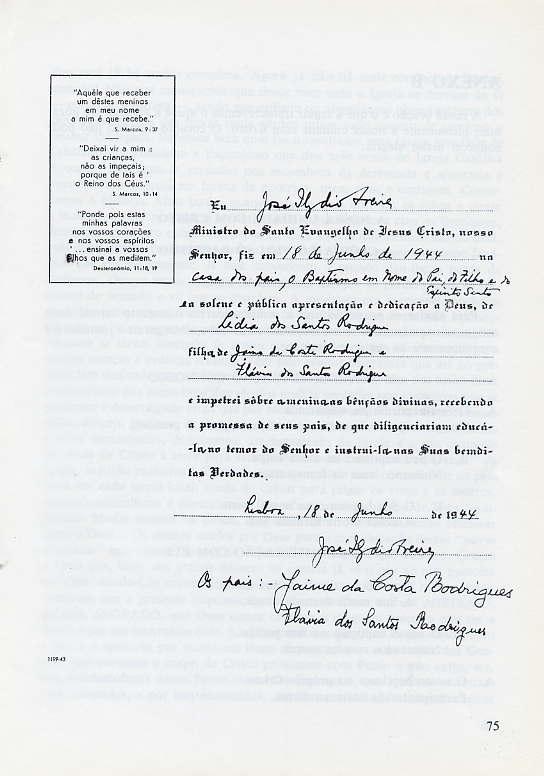 "Aquêle que receber
um dêstes meninos
em meu nome
a mim é que recebe."
S. Marcos, 9:37
"Deixai vir a mim
as crianças,
não as impeçais;
porque de tais é
o Reino dos Céus."
S. Marcos, 10:14
"Ponde pois estas
minhas palavras
nos vossos corações
e nos vossos espíritos
'...ensinai a vossos
filhos que as meditem."
Deuteronómio, 11:18, 19
Eu José Ilydio Freire
Ministro do Santo Evangelho de Jesus Cristo, nosso
Senhor, fiz em 18 de Junho de 1944 na
casa dos pais, o Baptismo em Nome do Pai, do Filho e do
Espírito Santo
a solene e pública apresentação e dedicação a Deus, de
Lídia dos Santos Rodrigues
filha de Jaime da Costa Rodrigues e
Flávia dos Santos Rodrigues
e impetrei sôbre a menina as bênçãos divinas, recebendo
a promessa de seus pais, de que diligenciariam educá-
-la no temor do Senhor e instruí-la nas Suas bemdi-
tas Verdades.
Lisboa, 18 de Junho de 1944
José Ilydio Freire
Os pais :- Jaime da Costa Rodrigues
Flávia dos Santos Rodrigues
1199-43
75